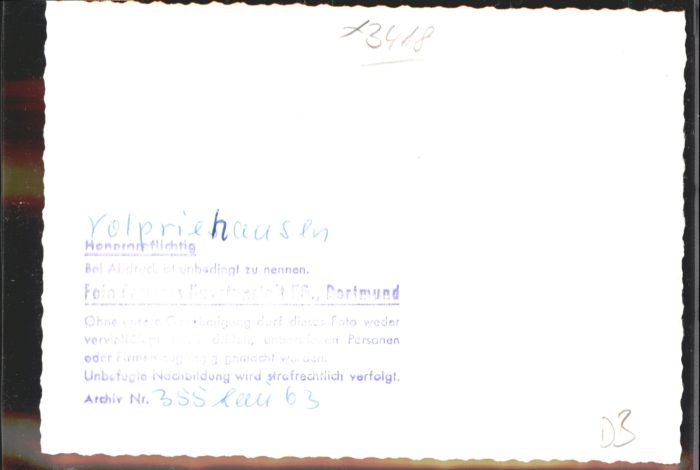 3418
Volpriehausen
Honorarpflichtig
Bei Abdruck ist unbedingt zu nennen.
Foto Kunstanstalt KG., Dortmund
Ohne unsere Genehmigung darf dieses Foto weder
vervielfältigt noch dritten, unberufenen Personen
oder Firmen zugängig gemacht werden.
Unbefugte Nachbildung wird strafrechtlich verfolgt.
Archiv Nr. 355 63
D3